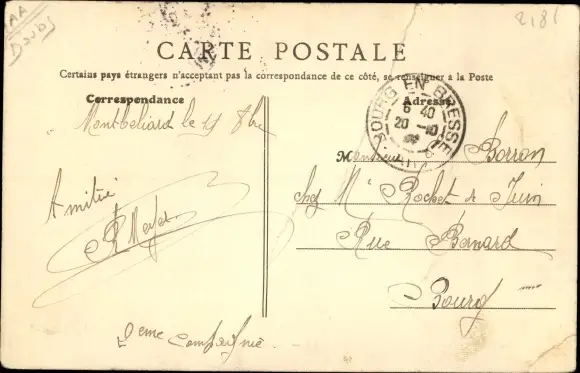 AA
Doubs
2181
CARTE POSTALE
Certains pays étrangers n'acceptant pas la correspondance de ce côté, se renseigner à la Poste
Correspondance
Adresse
Montbéliard le 19 8bre
BOURG EN BRESSE
6 40
20 -10
AIN
Monsieur Borron
chez Mr Rochet & Juin
Rue Bernard
Bourg
Amitié
R Meyer
2eme Compagnie